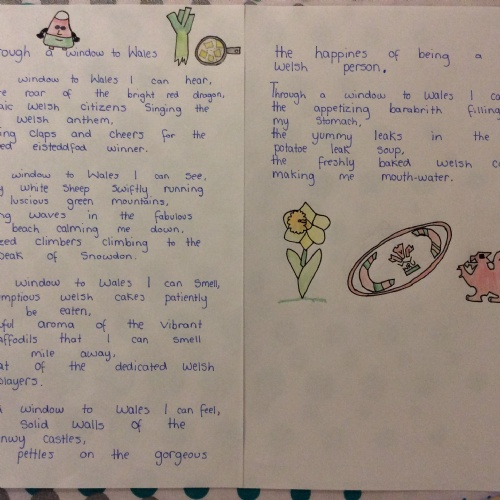 rough a window to Wales
window to Wales I can hear,
roar of the bright red dragon,
welsh citizens Singing the
welsh anthem,
claps and cheers for the
eisteddfod winner.
window to Wales I can see,
white Sheep Swiftly running
luscious green mountains,
waves in the fabulous
beach calming me down,
climbers climbing to the
peak of Snowdon.
window to Wales I can Smell,
welsh cakes patiently
be eaten,
aroma of the vibrant
that I can smell
mile away,
of the dedicated welsh
players.
window to Wales I can feel,
Solid walls of the
castles,
pettles on the gorgeous
the happines of being a
welsh person.
Through a window to Wales I
the appetizing barabrith filling
my Stomach,
the yummy leaks in the
potatoe leak Soup,
the freshly baked welsh
making me mouth-water.